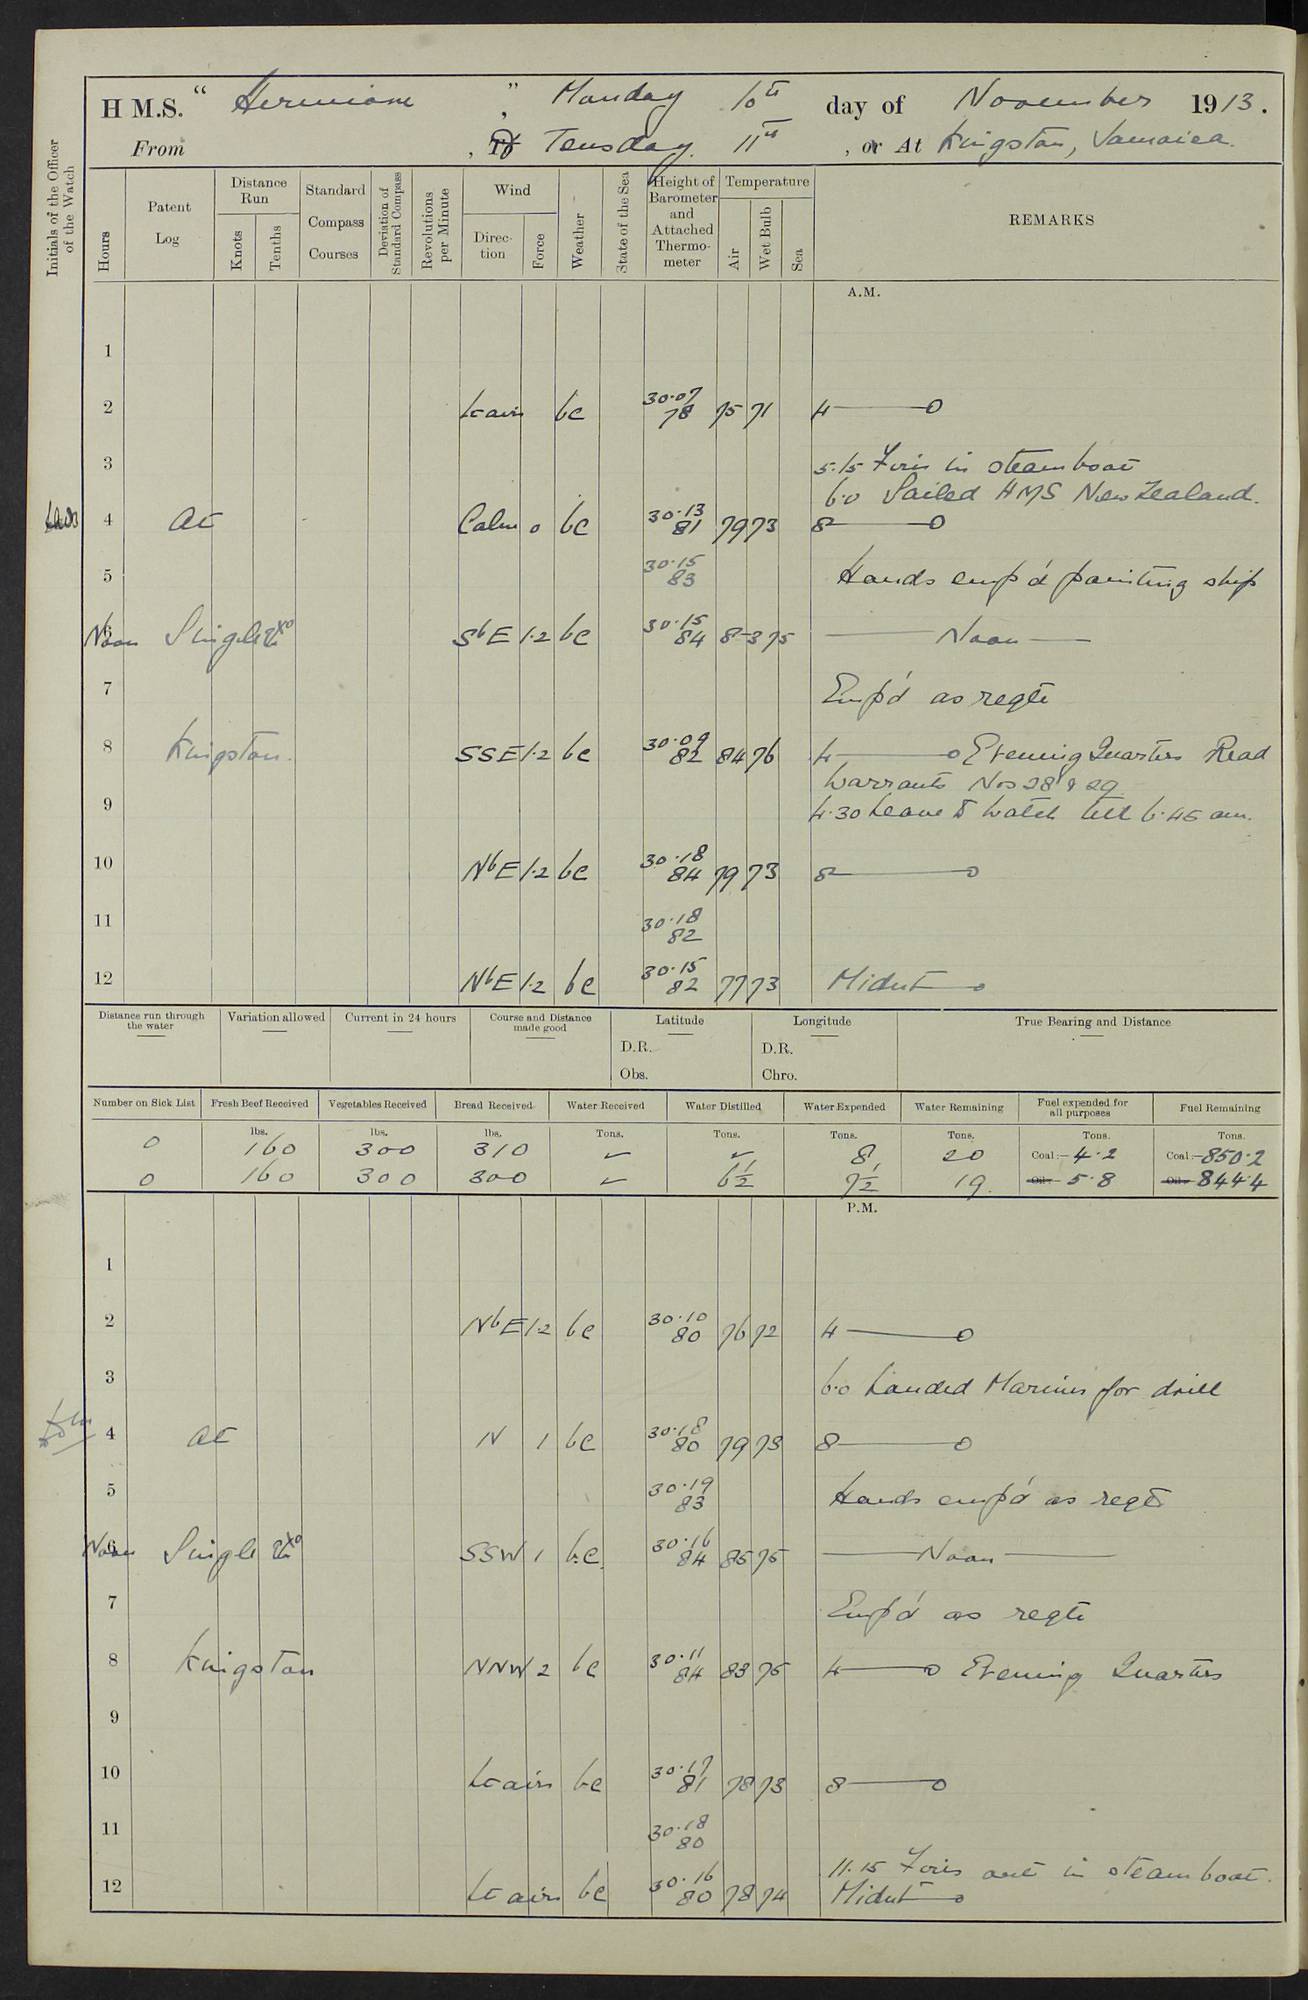 H M.S. “ Hermione ” Monday 10th day of November 1913.
From , To Tuesday 11th , or At Kingston, Jamaica.
Initials of the Officer of the Watch
Hours
Patent Log
Distance Run
Knots
Tenths
Standard Compass Courses
Deviation of Standard Compass
Revolutions per Minute
Wind
Direction
Force
Weather
State of the Sea
Height of Barometer and Attached Thermometer
Temperature
Air
Wet Bulb
Sea
REMARKS
A.M.
1
2 Lt airs bc 30.07 78 75 71 4
3 5.15 Fires in steam boat
6.0 Sailed HMS New Zealand.
4 At Calm 0 bc 30.13 81 79 73 8
5 30.15 83 Hands emp'd painting ship
6 Noon Single SbE 1.2 bc 30.15 84 83 75 Noon
7 Emp'd as reqte
8 Kingston. SSE 1.2 bc 30.09 82 84 76 4 Evening Quarters Read
Warrants Nos 28 & 29
9 4.30 Leave to watch till 6.45 am.
10 NbE 1.2 bc 30.18 84 79 73 8
11 30.18 82
12 NbE 1.2 bc 30.15 82 77 73 Midnt
Distance run through the water
Variation allowed
Current in 24 hours
Course and Distance made good
Latitude
D.R.
Obs.
Longitude
D.R.
Chro.
True Bearing and Distance
Number on Sick List Fresh Beef Received Vegetables Received Bread Received Water Received Water Distilled Water Expended Water Remaining Fuel expended for all purposes Fuel Remaining
lbs. lbs. lbs. Tons. Tons. Tons. Tons. Tons. Tons.
0 160 300 310 ✓ ✓ 8 20 Coal:- 4.2 Coal:- 850.2
0 160 300 300 ✓ 6½ 7½ 19. Oil:- 5.8 Oil:- 844.4
P.M.
1
2 NbE 1.2 bc 30.10 80 76 72 4
3 6.0 Landed Marines for drill
4 At N 1 bc 30.18 80 79 73 8
5 30.19 83 Hands emp'd as reqte
6 Noon Single SSW 1 bc. 30.16 84 85 75 Noon
7 Emp'd as reqte
8 Kingston NNW 2 bc 30.11 84 83 75 4 Evening Quarters
9
10 Lt airs bc 30.17 81 78 73 8
11 30.18 80
11.15 Fires out in steam boat.
12 Lt airs bc 30.16 80 78 74 Midnt